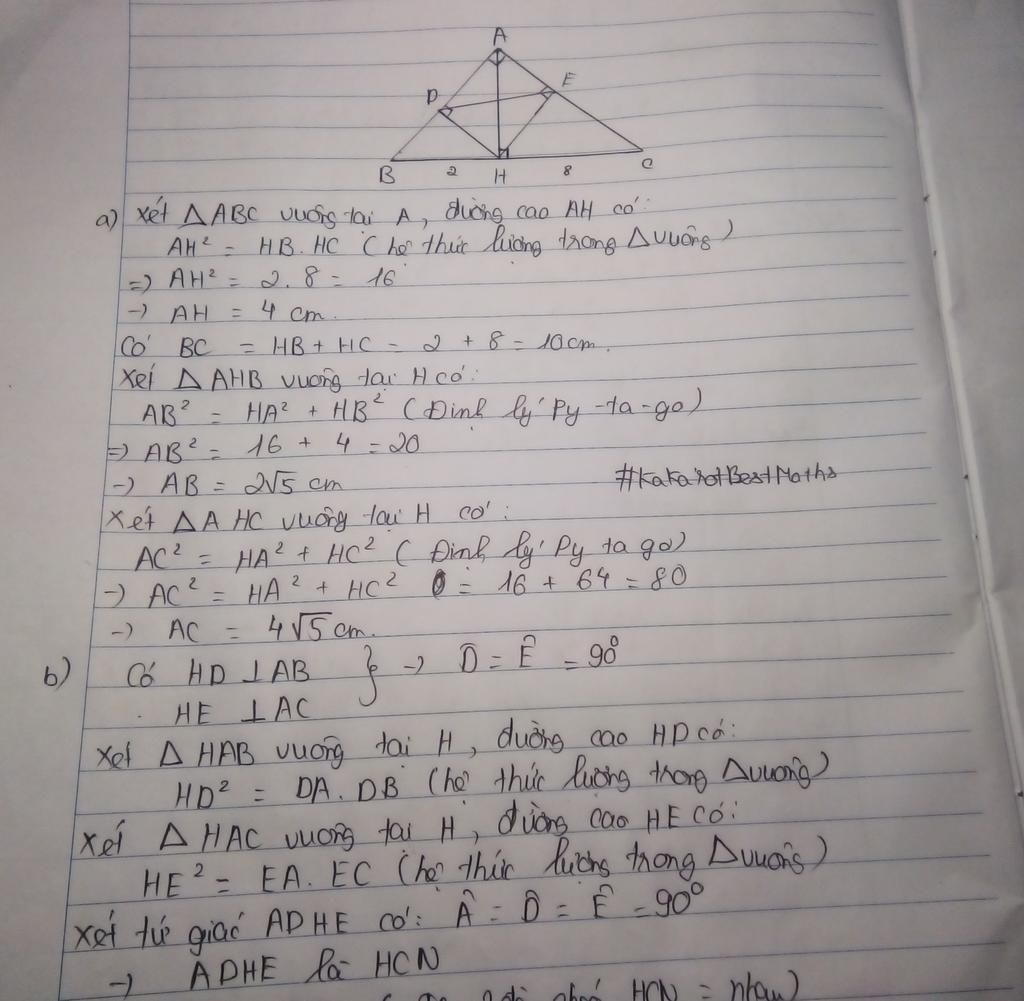 A
D
E
B
2
H
8
C
a) Xét △ABC vuông tại A, đường cao AH có:
AH² = HB. HC (hệ thức lượng trong △vuông)
=> AH² = 2. 8 = 16
-> AH = 4 cm.
Có BC = HB + HC = 2 + 8 = 10cm.
Xét △ AHB vuông tại H có:
AB² = HA² + HB² (Định lý Py-ta-go)
=> AB² = 16 + 4 = 20
-> AB = 2√5 cm
#KakarotBestMaths
Xét △AHC vuông tại H có:
AC² = HA² + HC² (Định lý Py ta go)
-> AC² = HA² + HC² = 16 + 64 = 80
-> AC = 4√5 cm.
b) Có HD ⊥ AB } -> D̂ = Ê = 90°
HE ⊥ AC
Xét △ HAB vuông tại H, đường cao HD có:
HD² = DA. DB (hệ thức lượng trong △vuông)
Xét △ HAC vuông tại H, đường cao HE có:
HE² = EA. EC (hệ thức lượng trong △vuông)
Xét tứ giác ADHE có: Â = D̂ = Ê = 90°
-> ADHE là HCN
HCN = nhau)